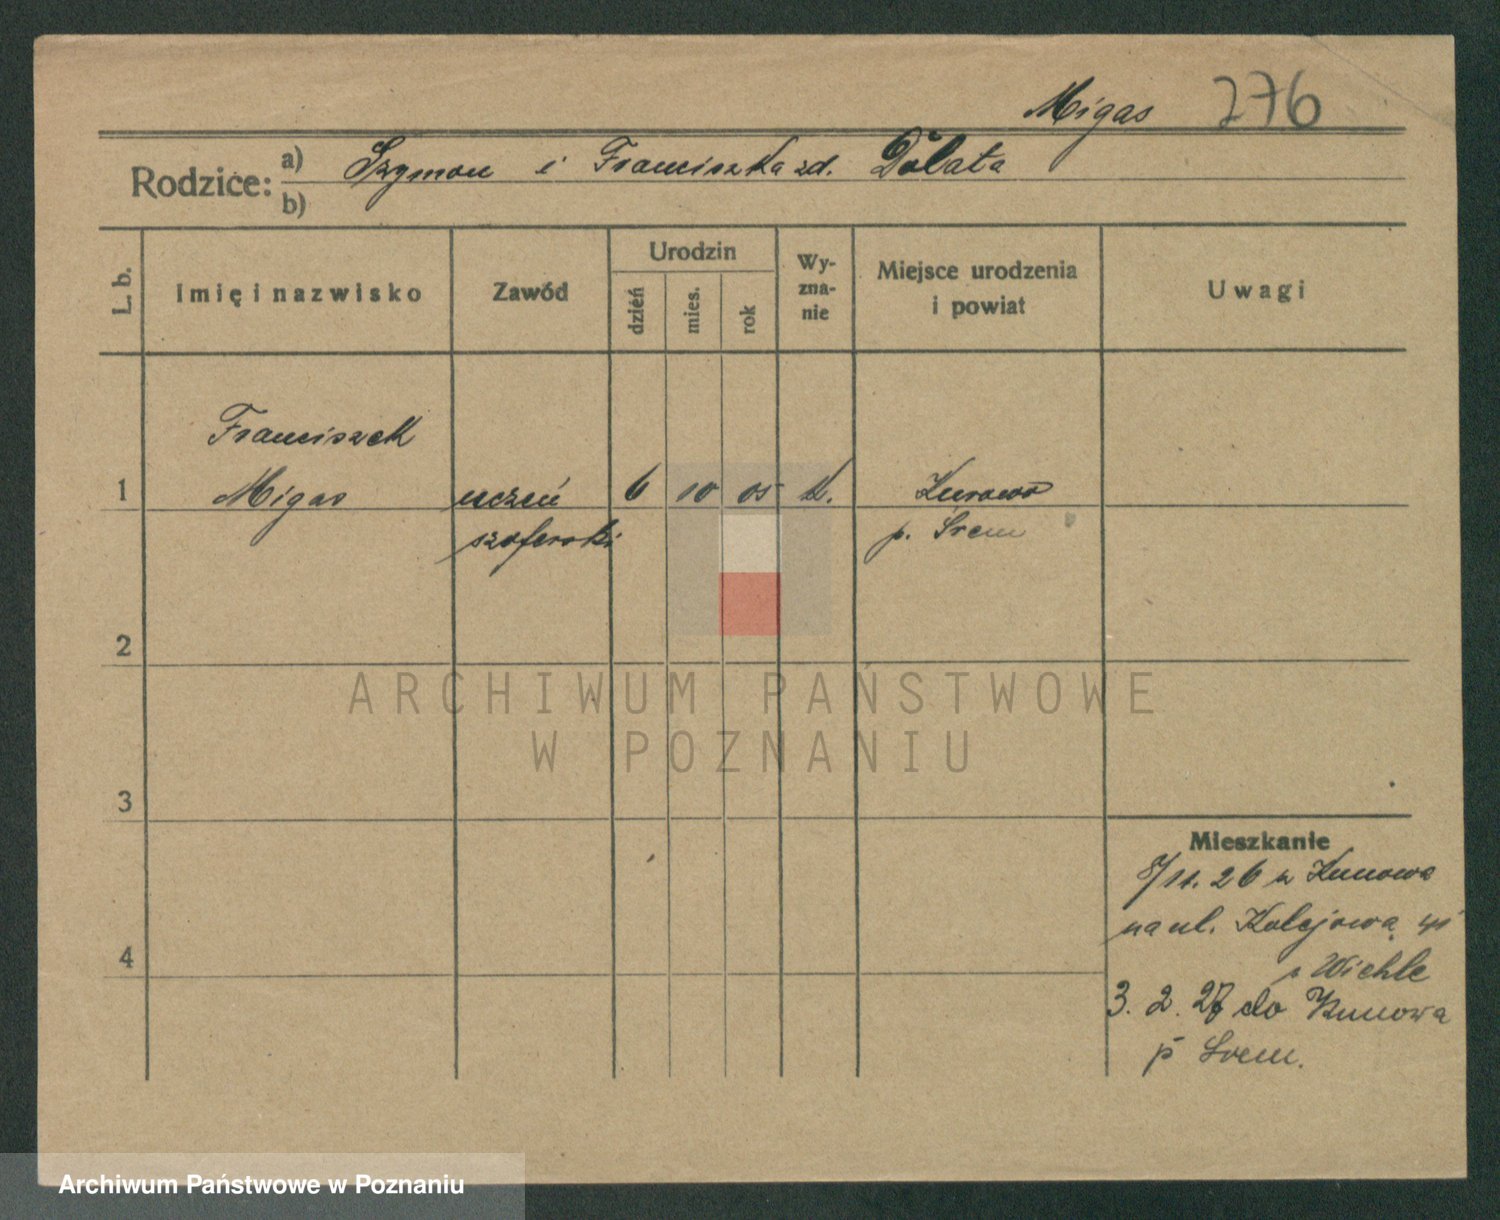 Migas 276
Rodzice: a) Szymon i Franciszka zd. Dolata
b)
L. b.
Imię i nazwisko
Zawód
Urodzin
dzień
mies.
rok
Wy-
zna-
nie
Miejsce urodzenia
i powiat
Uwagi
Franciszek
1 Migas uczeń 6 10 05 k. Kunowo
szoferski p. Śrem
2
3
4
Mieszkanie
8/11. 26 z Kunowa
na ul. Kolejowa
Wichle
3. 2. 27 do Kunowa
p Śrem.
ARCHIWUM PAŃSTWOWE
W POZNANIU
Archiwum Państwowe w Poznaniu